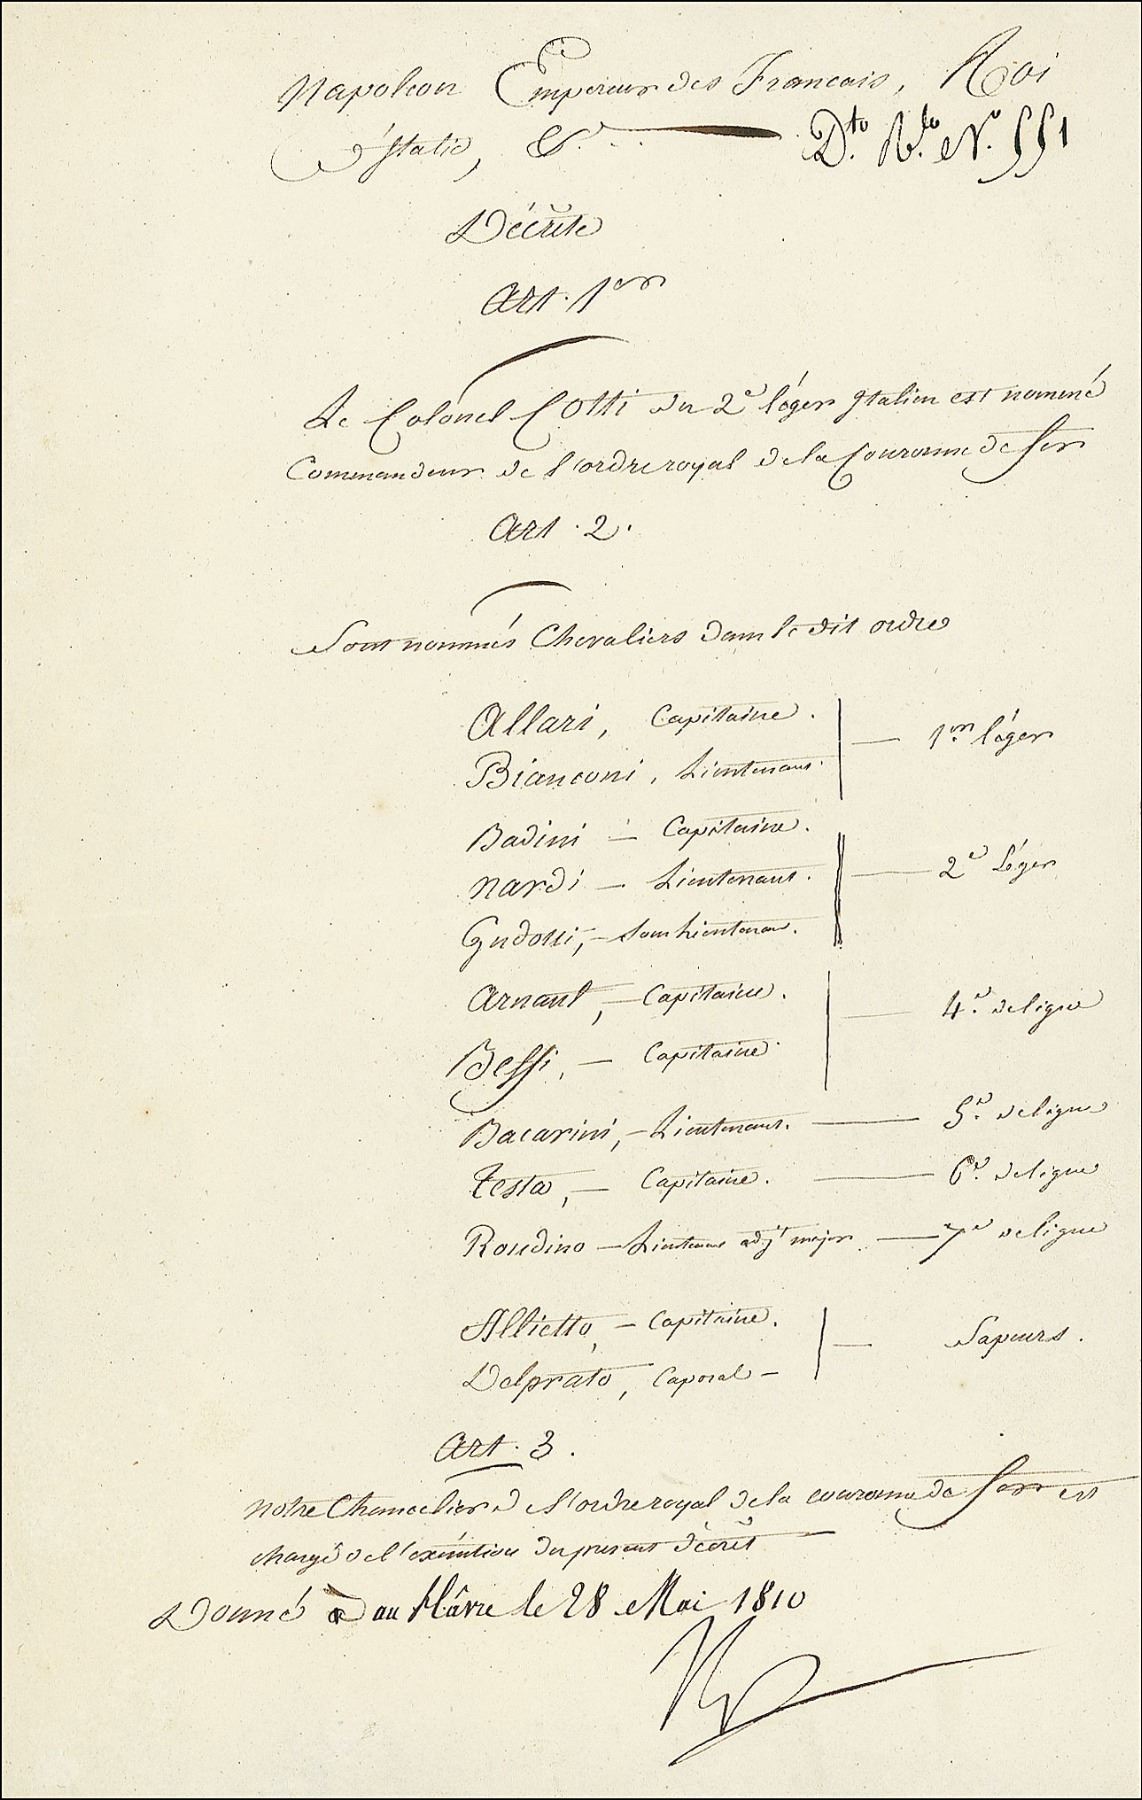 Napoleon Empereur des Francais, Roi
d'Italie, &c.. D.to R.le N.o 551
Décrète
Art. 1er
Le Colonel Cotti du 2e léger Italien est nommé
Commandeur de l'ordre royal de la Couronne de fer
Art. 2.
Sont nommés Chevaliers dans le dit ordre
Allari, Capitaine. 1er léger
Bianconi, Lieutenant.
Badini — Capitaine.
Nardi — Lieutenant. 2e léger
Gudotti, — Sous Lieutenant.
Arnaul, — Capitaine. 4e de ligne
Bessi, — Capitaine.
Bacarini, — Lieutenant. — 5e de ligne
Testa, — Capitaine. — 6e de ligne
Roudino — Lieutenant adjt major — 7e de ligne
Allietto, — Capitaine. — Sapeurs.
Delprato, Caporal —
Art. 3.
Notre Chancelier de l'ordre royal de la couronne de fer est
chargé de l'exécution du present décret —
Donné au Hâvre le 28 Mai 1810
Np